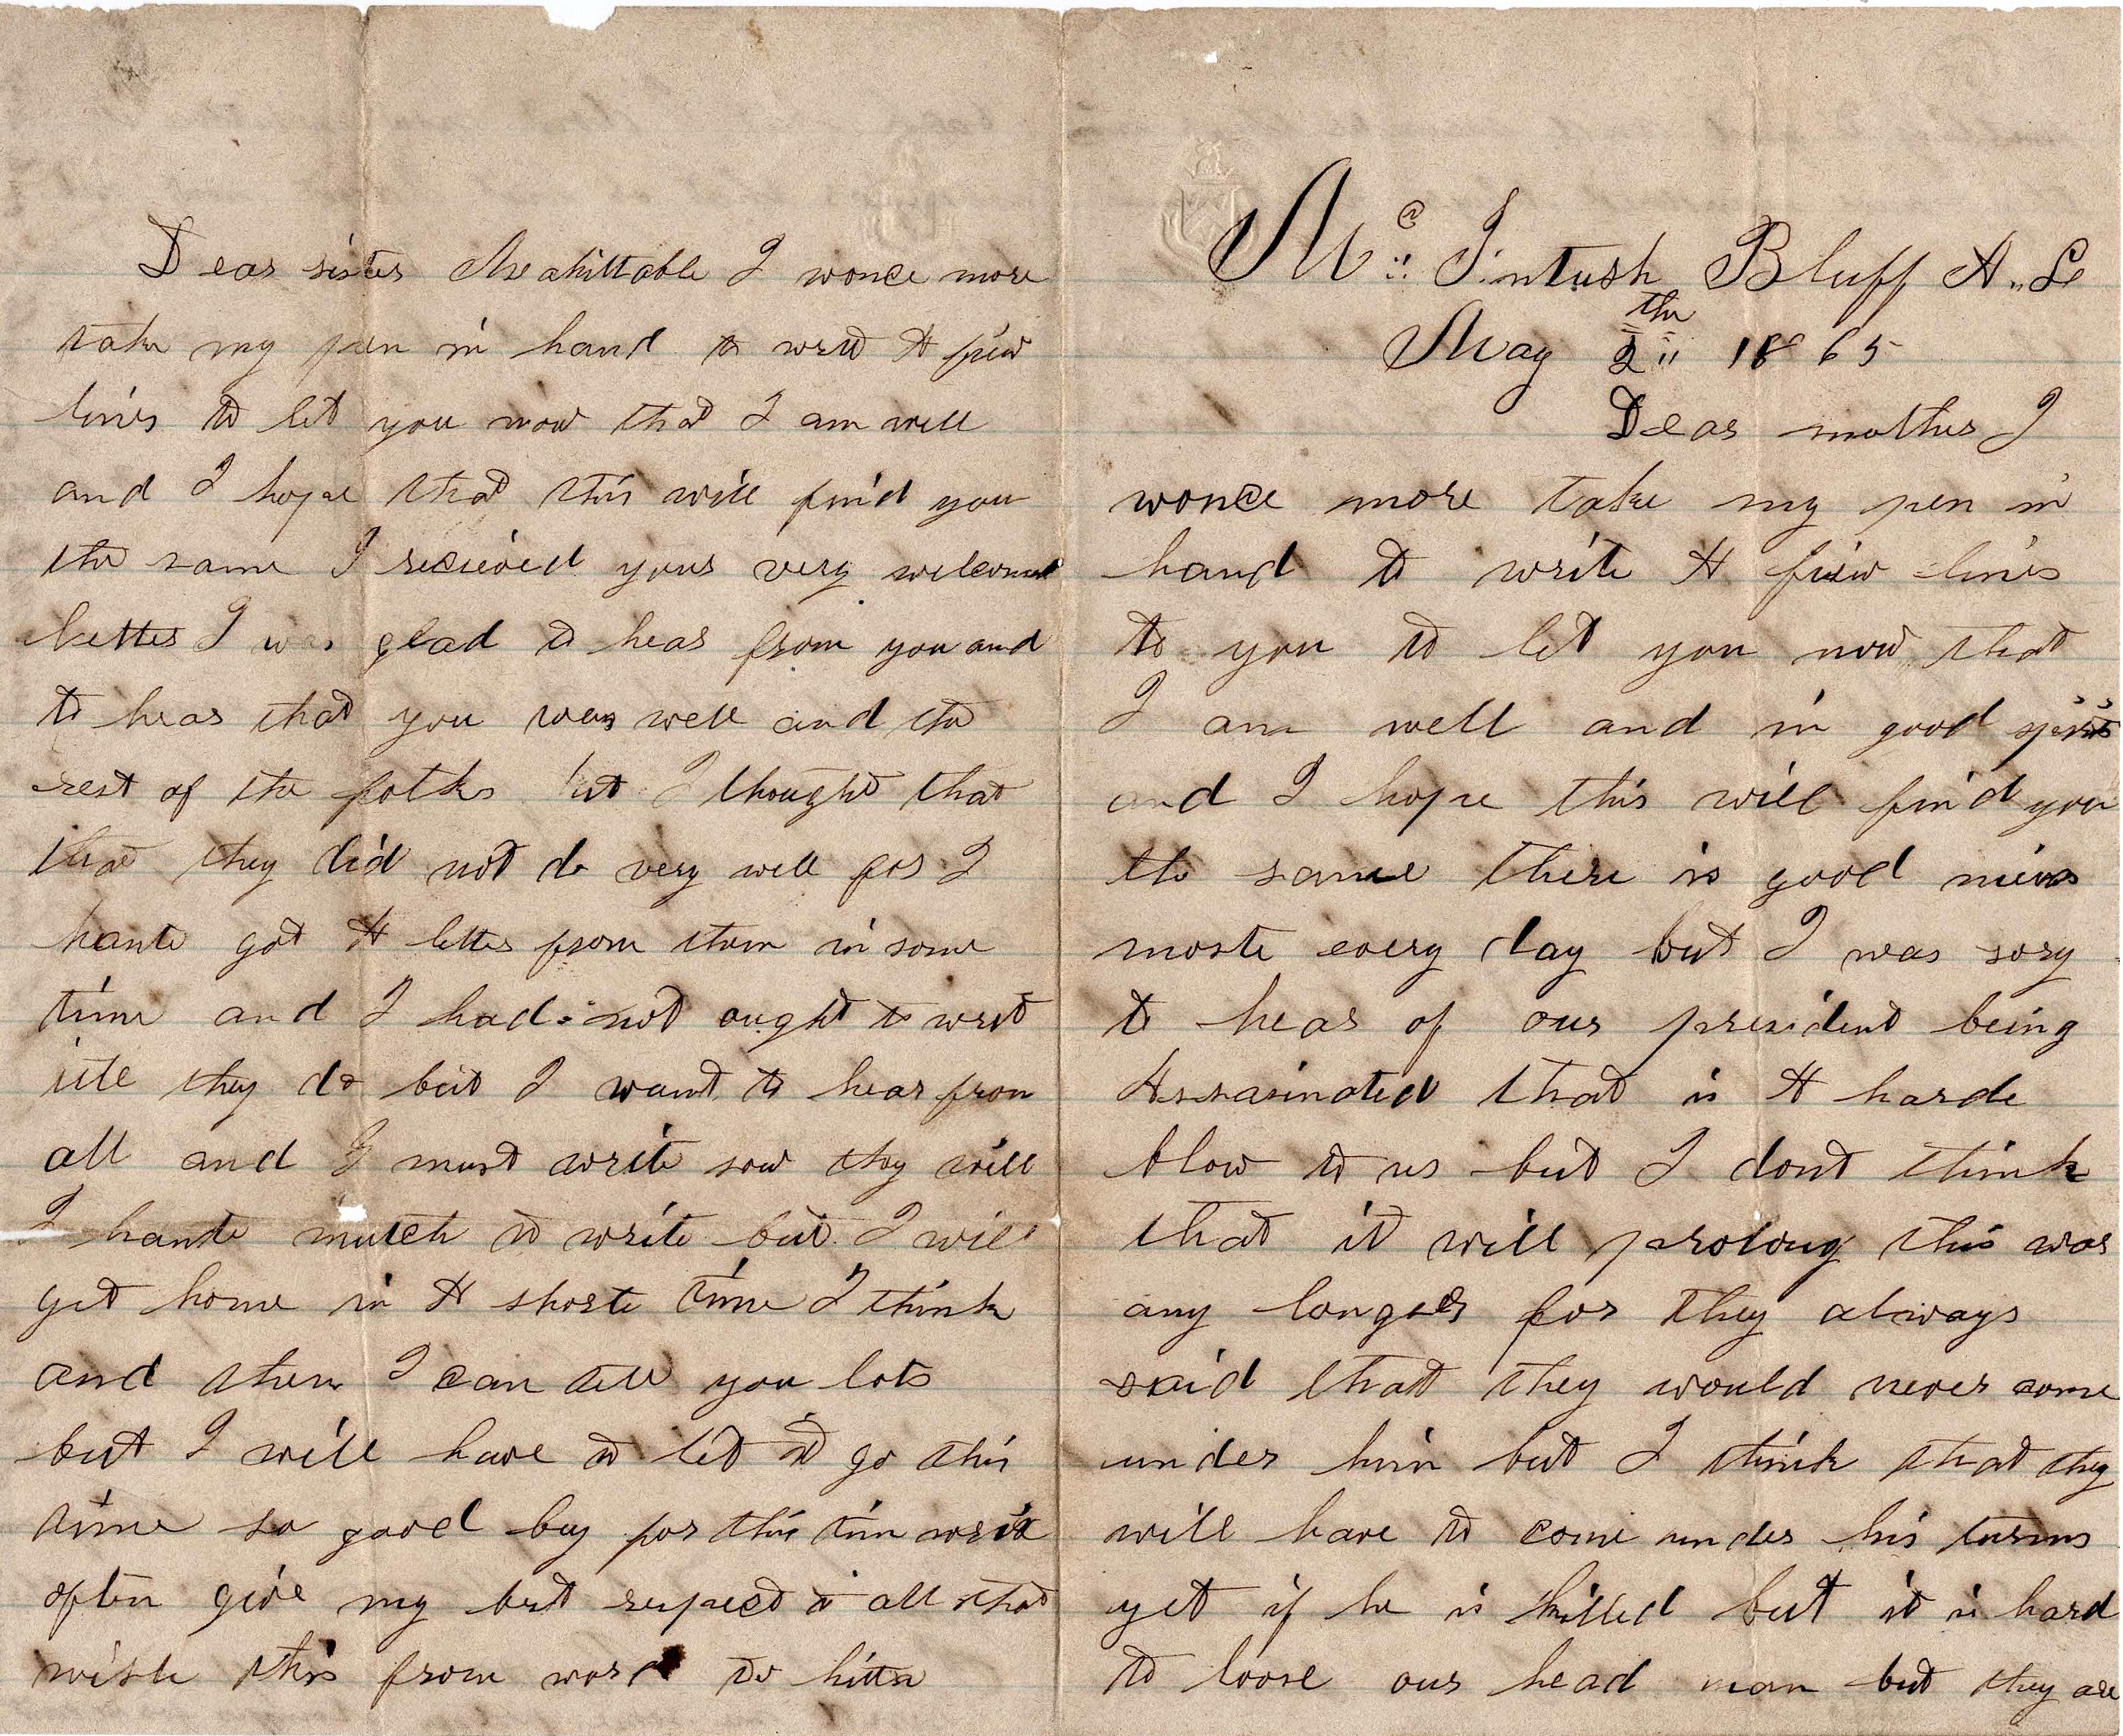 Dear sister Mehittable I wonce more
take my pen in hand to writ A few
lines to let you now that I am well
and I hope that this will find you
the same I recieved your very welcomed
letter I was glad to hear from you and
to hear that you was well and the
rest of the folks but I thought that
that they did not do very well for I
hante got A letter from them in some
time and I had not ought to writ
till they do but I want to hear from
all and I must write sow they will
I hante mutch to write but I will
get home in A shorte time I think
and then I can tell you lots
but I will have to let it go this
time so good by for this time write
often give my best respect to all that
wish this from to
Mc Intush Bluff A.. L
May 2th 1865
Dear mother I
wonce more take my pen in
hand to write A fiew lines
to you to let you now that
I am well and in good spirits
and I hope this will find you
the same there is good niews
moste every day but I was sory
to hear of our president being
Assasinated that is A harde
blow to us but I dont think
that it will prolong this war
any longer for they always
said that they would never come
under him but I think that they
will have to come under his turms
yet if he is killed but it is hard
to loose our head man but they are